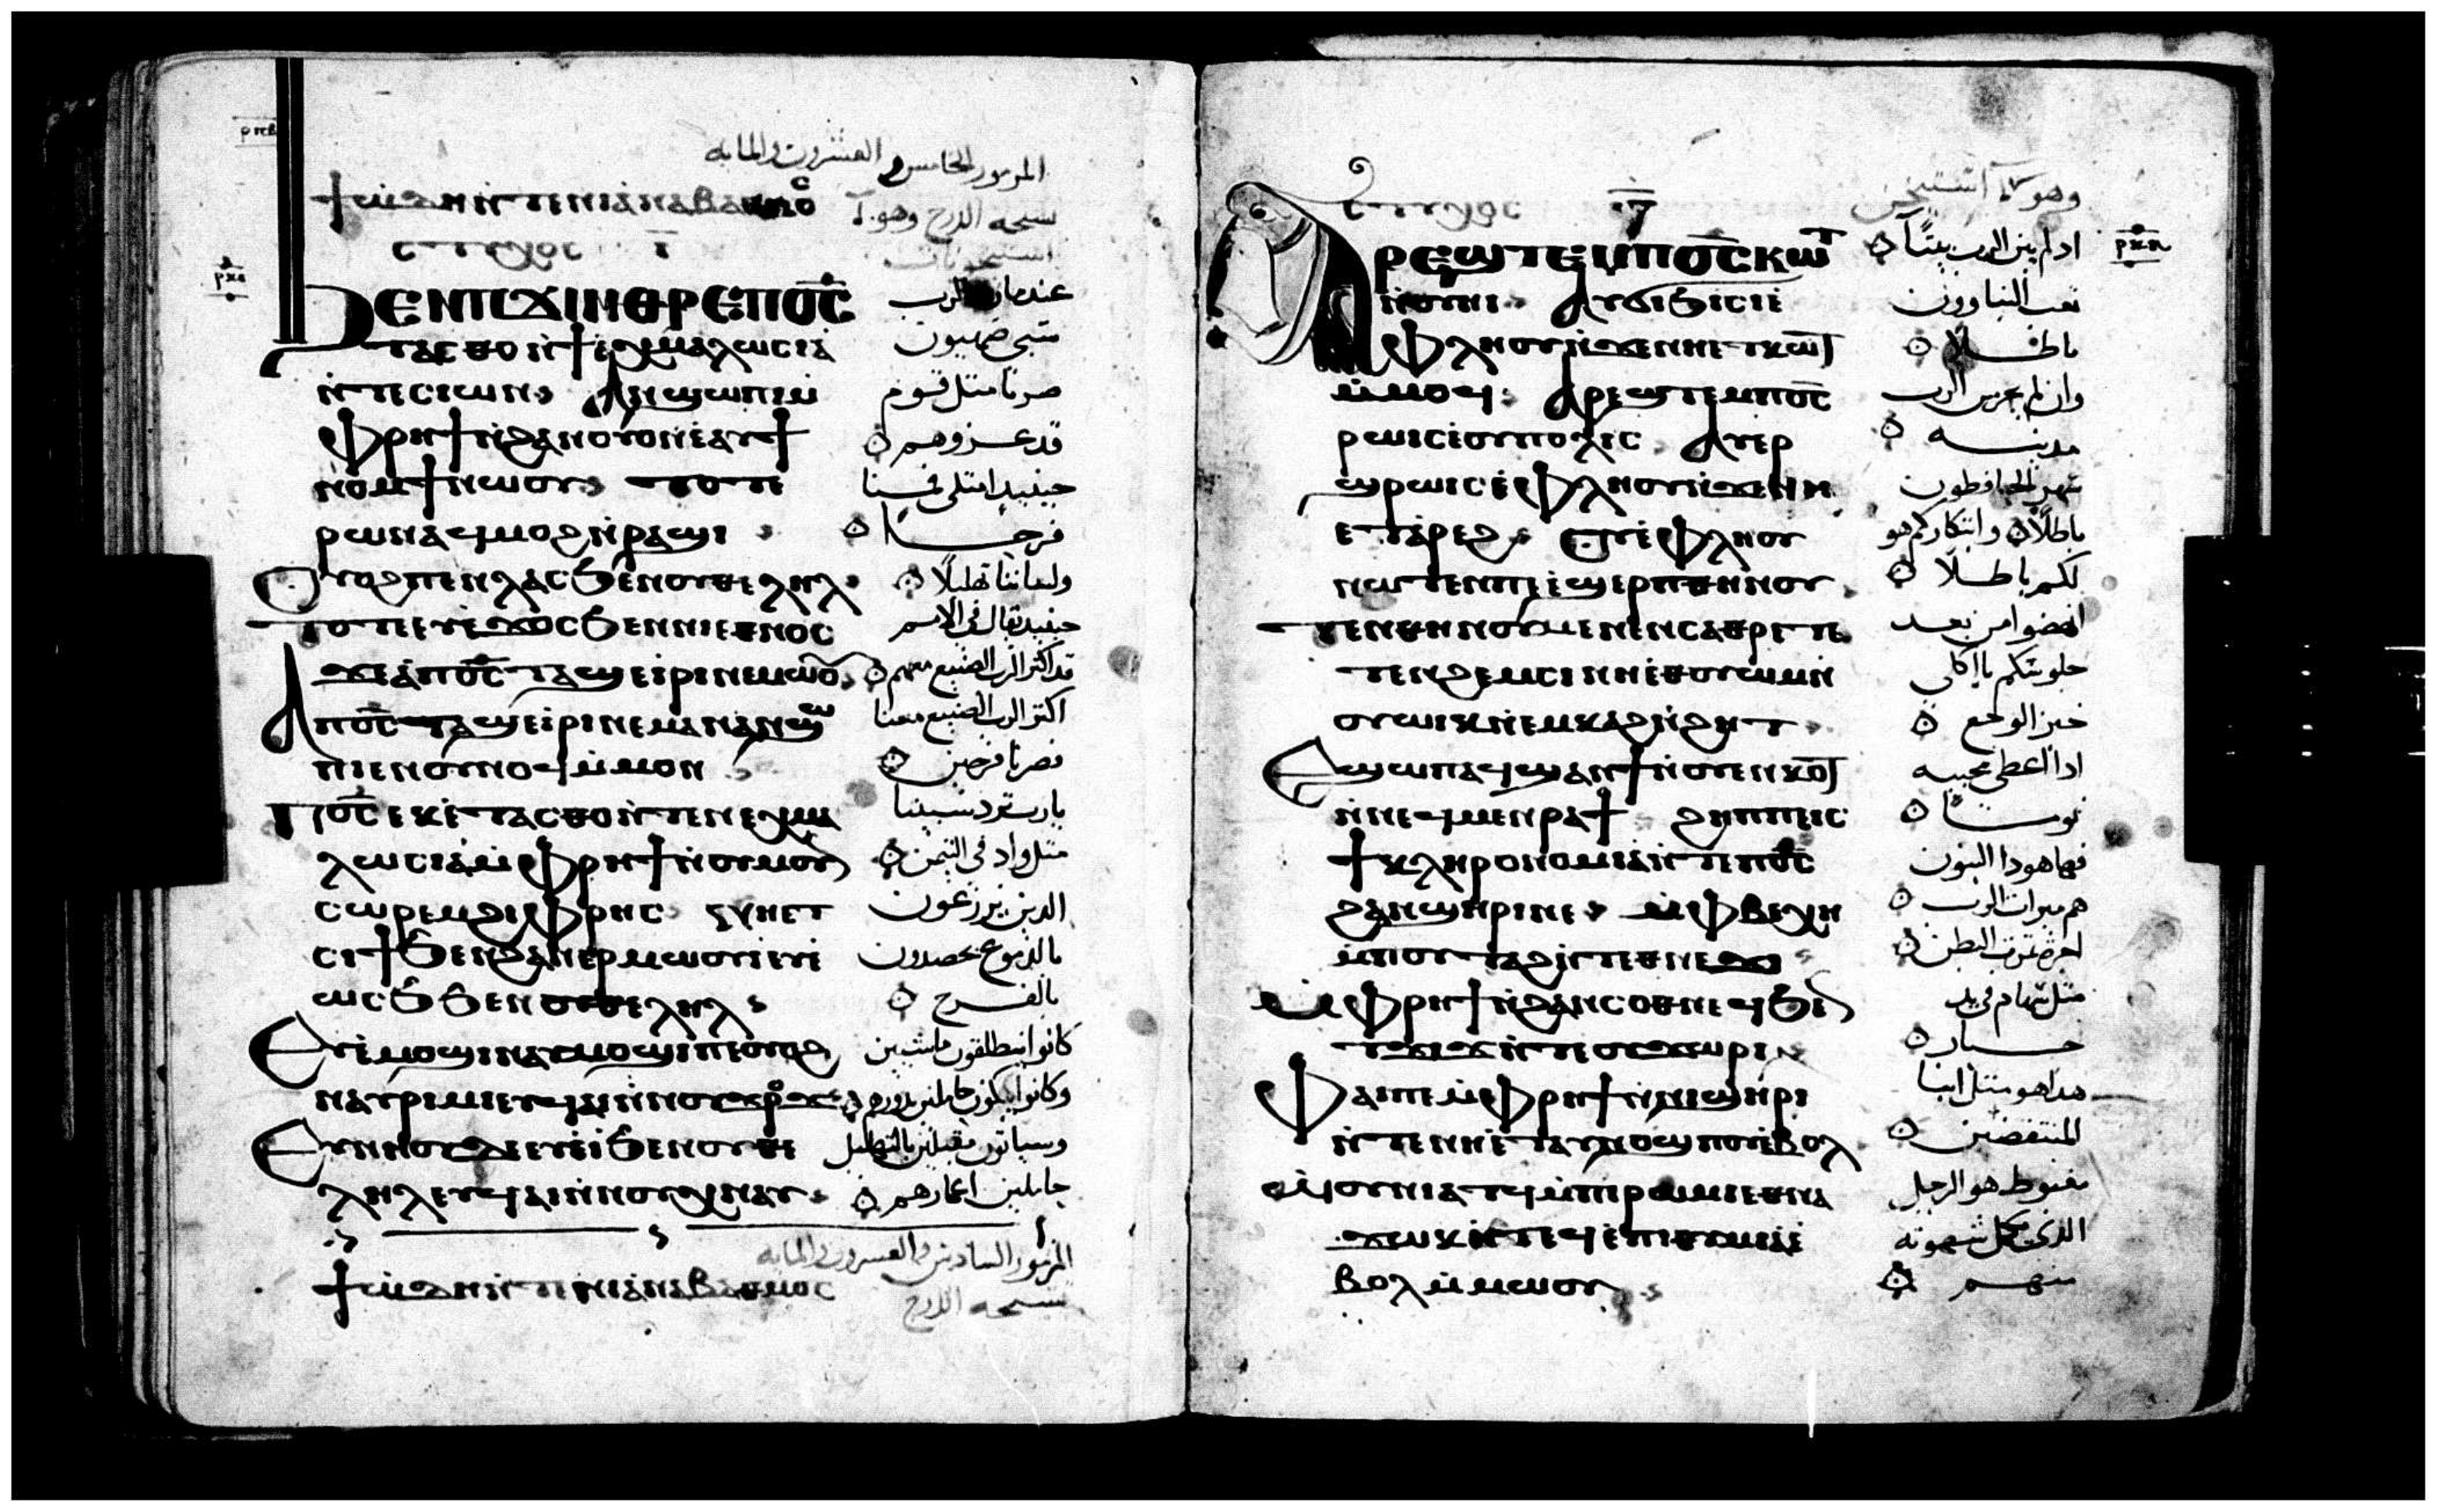 ⲣⲝⲉ
ϯϩⲱⲇⲏ ⲛ̀ⲧⲉ ⲛⲓⲁ̀ⲛⲁⲃⲁⲑⲙⲟⲥ
ⲥⲧⲩⲭⲟⲥ ⲓ̅
ϦⲈⲚⲠϪⲒⲚⲐⲢⲈⲠⲞ̅Ⲥ̅
ⲧⲁⲥⲑⲟ ⲛ̀ϯⲉⲭⲙⲁⲗⲱⲥⲓⲁ̀
ⲛ̀ⲧⲉ ⲥⲓⲱⲛ ⲁⲛϣⲱⲡⲓ ⲙ̀
ⲫⲣⲏϯ ⲛ̀ϩⲁⲛⲟⲩⲟⲛ ⲉ̀ⲁⲩϯ
ⲛⲟⲙϯ ⲛⲱⲟⲩ ⲧⲟⲧⲉ
ⲣⲱⲛ ⲁϥⲙⲟϩ ⲛ̀ⲣⲁϣⲓ
ⲟⲩⲟϩ ⲡⲉⲛⲗⲁⲥ ϧⲉⲛ ⲟⲩⲑⲉⲗⲏⲗ
ⲧⲟⲧⲉ ⲉⲩⲉ̀ϫⲟⲥ ϧⲉⲛ ⲛⲓⲉⲑⲛⲟⲥ
ϫⲉ ⲁ̀ ⲡⲟ̅ⲥ̅ ⲧⲁϣⲉ ⲓ̀ⲣⲓ ⲛⲉⲙⲱⲟⲩ
ⲁ ⲡⲟ̅ⲥ̅ ⲧⲁϣⲉ ⲓ̀ⲣⲓ ⲛⲉⲙⲁⲛ ⲁⲛϣⲱ
ⲡⲓ ⲉⲛⲟⲩⲛⲟϥ ⲙ̀ⲙⲟⲛ
ⲡⲟ̅ⲥ̅ ⲉⲕⲉ̀ⲧⲁⲥⲑⲟ ⲛ̀ⲧⲉⲛⲉⲭⲙⲁ
ⲗⲱⲥⲓⲁ̀ ⲙ̀ⲫⲣⲏϯ ⲛ̀ⲟⲩⲙⲟⲩ
ⲥⲱⲣⲉⲙ ϩⲓ ⲫⲣⲏⲥ ⲛⲏⲉⲧ
ⲥⲓϯ ϧⲉⲛ ϩⲁⲛⲉⲣⲙⲱⲟⲩⲓ ⲉⲩⲉ̀
ⲱⲥϧ ϧⲉⲛ ⲟⲩⲑⲉⲗⲏⲗ
ⲉⲩⲉ̀ⲙⲟϣⲓ ⲛⲁⲩⲙⲟϣⲓ ⲡⲉ ⲟⲩⲟϩ
ⲛⲁⲩⲣⲓⲙⲓ ⲉⲩϥⲁⲓ ⲛ̀ⲛⲟⲩϫⲣⲟϫ
ⲉⲩⲛⲏⲟⲩ ⲇⲉ ⲉⲩⲉ̀ⲓ̀ ϧⲉⲛ ⲟⲩⲑⲉ
ⲗⲏⲗ ⲉⲩϥⲁⲓ ⲛ̀ⲛⲟⲩⲭⲛⲁⲩ
ϯϩⲱⲇⲏ ⲛ̀ⲧⲉ ⲛⲓⲁ̀ⲛⲁⲃⲁⲑⲙⲟⲥ
المزمور الخامس والعشرون والمايه
سبحه الدرج وهو
الرب
سبى صهيون
صرنا مثل قوم
قد عزوهم
حينيد امتلى فمنا
فرحا
ولساننا تهليلا
حينيد يقال في الامم
قد اكثر الرب الصنيع معهم
اكثر الرب الصنيع معنا
فصرنا فرحين
يارب تردد سبينا
مثل واد في التيمن
الدين يزرعون
بالدموع يحصدون
بالفرح
كانوا ينطلقون ماشيين
وسياتون مقبلين بالتهليل
حاملين اغمارهم
المزمور السادس والعشرون والمايه
سبحه الدرج
ⲥⲧⲩⲭⲟⲥ
ⲁⲢⲈϢⲦⲈⲘⲠⲞ̅Ⲥ̅ⲔⲰⲦ
ⲛ̀ⲟⲩⲏⲓ ⲁⲩϭⲓϧⲓⲥⲓ ⲉ̀
ⲫⲗⲏⲟⲩ ⲛ̀ϫⲉ ⲛⲏⲉⲧⲕⲱϯ
ⲙ̀ⲙⲟϥ ⲁⲣⲉϣⲧⲉⲙ ⲡⲟ̅ⲥ̅
ⲣⲱⲓⲥ ⲉ̀ⲟⲩⲡⲟⲗⲓⲥ ⲁⲩⲉⲣ
ϣⲣⲱⲓⲥ ⲉ̀ⲫⲗⲏⲟⲩ ⲛ̀ϫⲉ ⲛⲏ
ⲉⲧⲁ̀ⲣⲉϩ ⲟⲩⲉ̀ⲫⲗⲏⲟⲩ
ⲛⲱⲧⲉⲛ ⲡⲉ ⲉ̀ϣⲉⲣⲡⲑⲏⲛⲟⲩ
ⲧⲉⲛⲑⲏⲛⲟⲩ ⲙⲉⲛⲉⲛⲥⲁ ⲑⲣⲉⲧⲉ
ⲧⲉⲛϩⲉⲙⲥⲓ ⲛⲏⲉ̀ⲑⲟⲩⲱⲙ ⲛ̀
ⲟⲩⲱⲓⲕ ⲛ̀ⲉⲙⲕⲁϩ ⲛ̀ϩⲏⲧ
ⲉϣⲱⲡ ⲁϥϣⲁⲛϯ ⲛ̀ⲟⲩⲉⲛⲕⲟⲧ
ⲛ̀ⲛⲉϥⲙⲉⲛⲣⲁϯ ϩⲏⲡⲡⲉ ⲓⲥ
ϯⲕⲗⲏⲣⲟⲛⲟⲙⲓⲁ̀ ⲛ̀ⲧⲉ ⲡⲟ̅ⲥ̅
ϩⲁⲛϣⲏⲣⲓ ⲛⲉ ⲫⲃⲉⲭⲉ
ⲙ̀ⲡⲟⲩⲧⲁϩ ⲛ̀ⲧⲉ ⲑⲛⲉϫⲓ
ⲙ̀ⲫⲣⲏϯ ⲛ̀ϩⲁⲛⲥⲟⲑⲛⲉϥ ϧⲉⲛ
ⲧϫⲓϫ ⲛ̀ⲧⲉ ⲟⲩϫⲱⲣⲓ
ⲫⲁⲓ ⲡⲉ ⲙ̀ⲫⲣⲏϯ ⲛ̀ⲛⲓϣⲏⲣⲓ
ⲛ̀ⲧⲉ ⲛⲏⲉ̀ⲧⲁⲩⲛⲟϣⲡⲟⲩ ⲉ̀ⲃⲟⲗ
ⲱⲟⲩⲛⲓⲁⲧϥ ⲙ̀ⲡⲓⲣⲱⲙⲓ ⲉⲑⲛⲁ
ϫⲱⲕ ⲛ̀ⲧⲉϥⲉ̀ⲡⲓⲑⲩⲙⲓⲁ̀ ⲉ̀
ⲃⲟⲗ ⲙ̀ⲙⲱⲟⲩ
ادا لم يبن الرب بيتا
تعب البناوون
باطلا
وان لم يحرس الرب
مدينه
سهر الحافظون
باطلا وابتكاركم هو
لكم باطلا
انهضوا من بعد
جلوسكم يا اكلي
خبز الوجع
ادا اعطى محبيه
نوما
فها هودا البنون
هم ميراث الرب
اجره ثمرة البطن
مثل سهام في يد
جبار
هدا هو مثل ابنا
المنتفضين
مغبوط هو الرجل
الدي يكمل شهوته
منهم